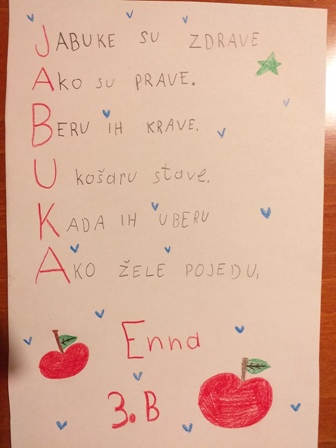 JABUKE SU ZDRAVE
AKO SU PRAVE.
BERU IH KRAVE.
U košaru stave.
KADA IH UBERU
AKO ŽELE POJEDU,
Enna
3.B